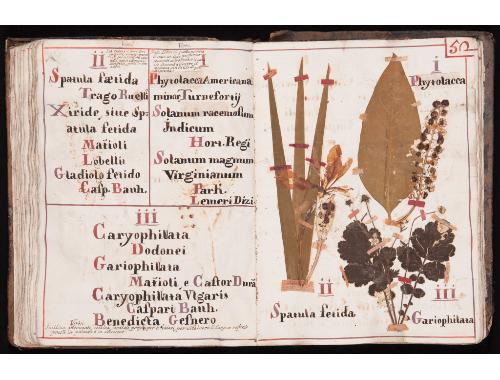 ii
Spatula fætida
Trago Ruelli
Xiride, siue Sp-
atula fetida
Matioli
Lobelli
Gladiolo fetido
Casp. Bauh.
i
Phytolacca Americana
minor Turneforij
Solanum racemosum
Indicum
Hort. Regi
Solanum magnum
Virginianum
Park.
Lemeri Dizi.
iii
Caryophillata
Dodonei
Gariophillata
Matioli, e Castor Dura
Caryophillata Vlgaris
Caspari Bauh.
Benedicta Gesnero
50
i
Phytolacca
ii
Spatula fetida
iii
Gariophillata